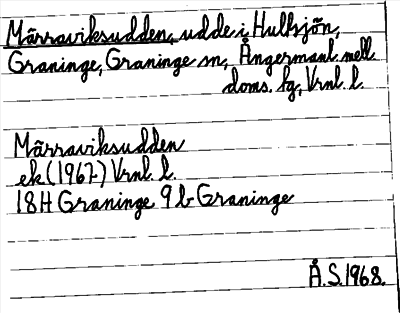 Märraviksudden, udde i Hullsjön,
Graninge, Graninge sn, Ångermanl. mell.
doms. fg, Vrnl. l.
Märraviksudden
ek. (1967) Vrnl. l.
18H Graninge 9 b Graninge
Å.S. 1968.